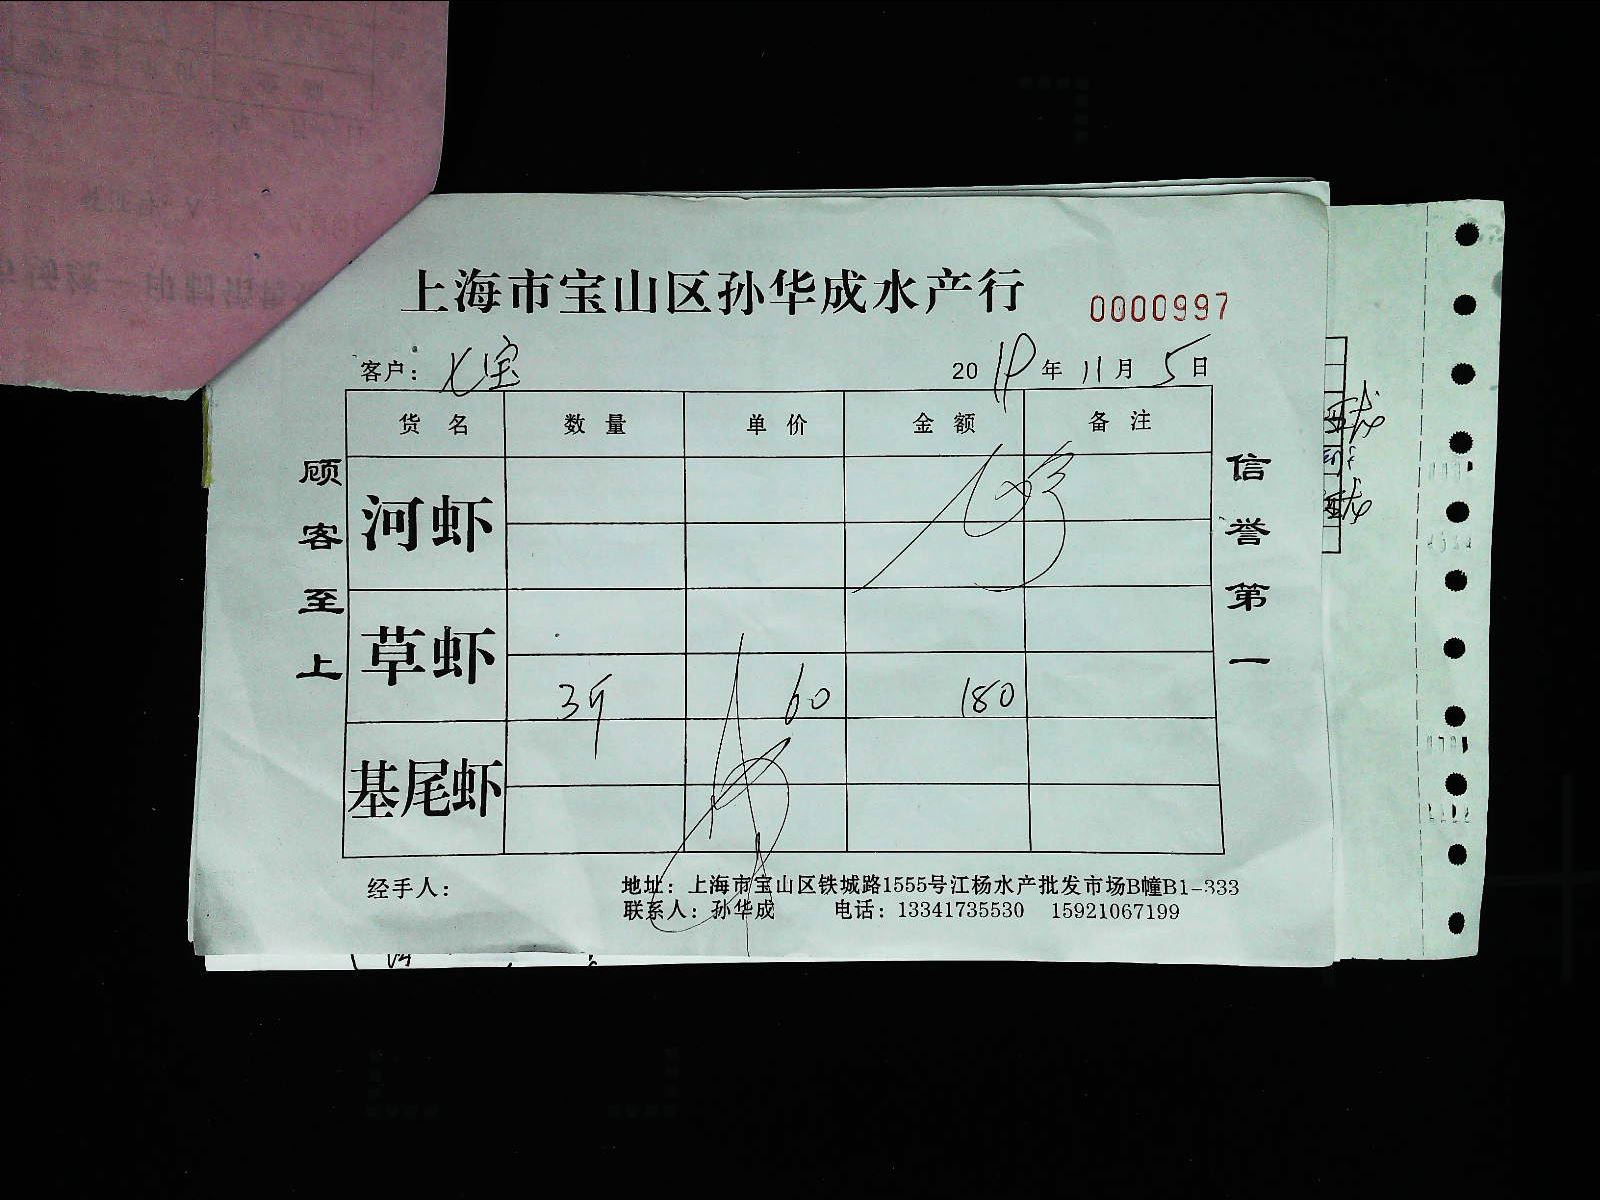 上海市宝山区孙华成水产行 0000997
客户: 七宝 2019年11月5日
货名 数量 单价 金额 备注
顾客至上
信誉第一
河虾
草虾
3斤 60 180
基尾虾
经手人:
地址: 上海市宝山区铁城路1555号江杨水产批发市场B幢B1-333
联系人: 孙华成 电话: 13341735530 15921067199